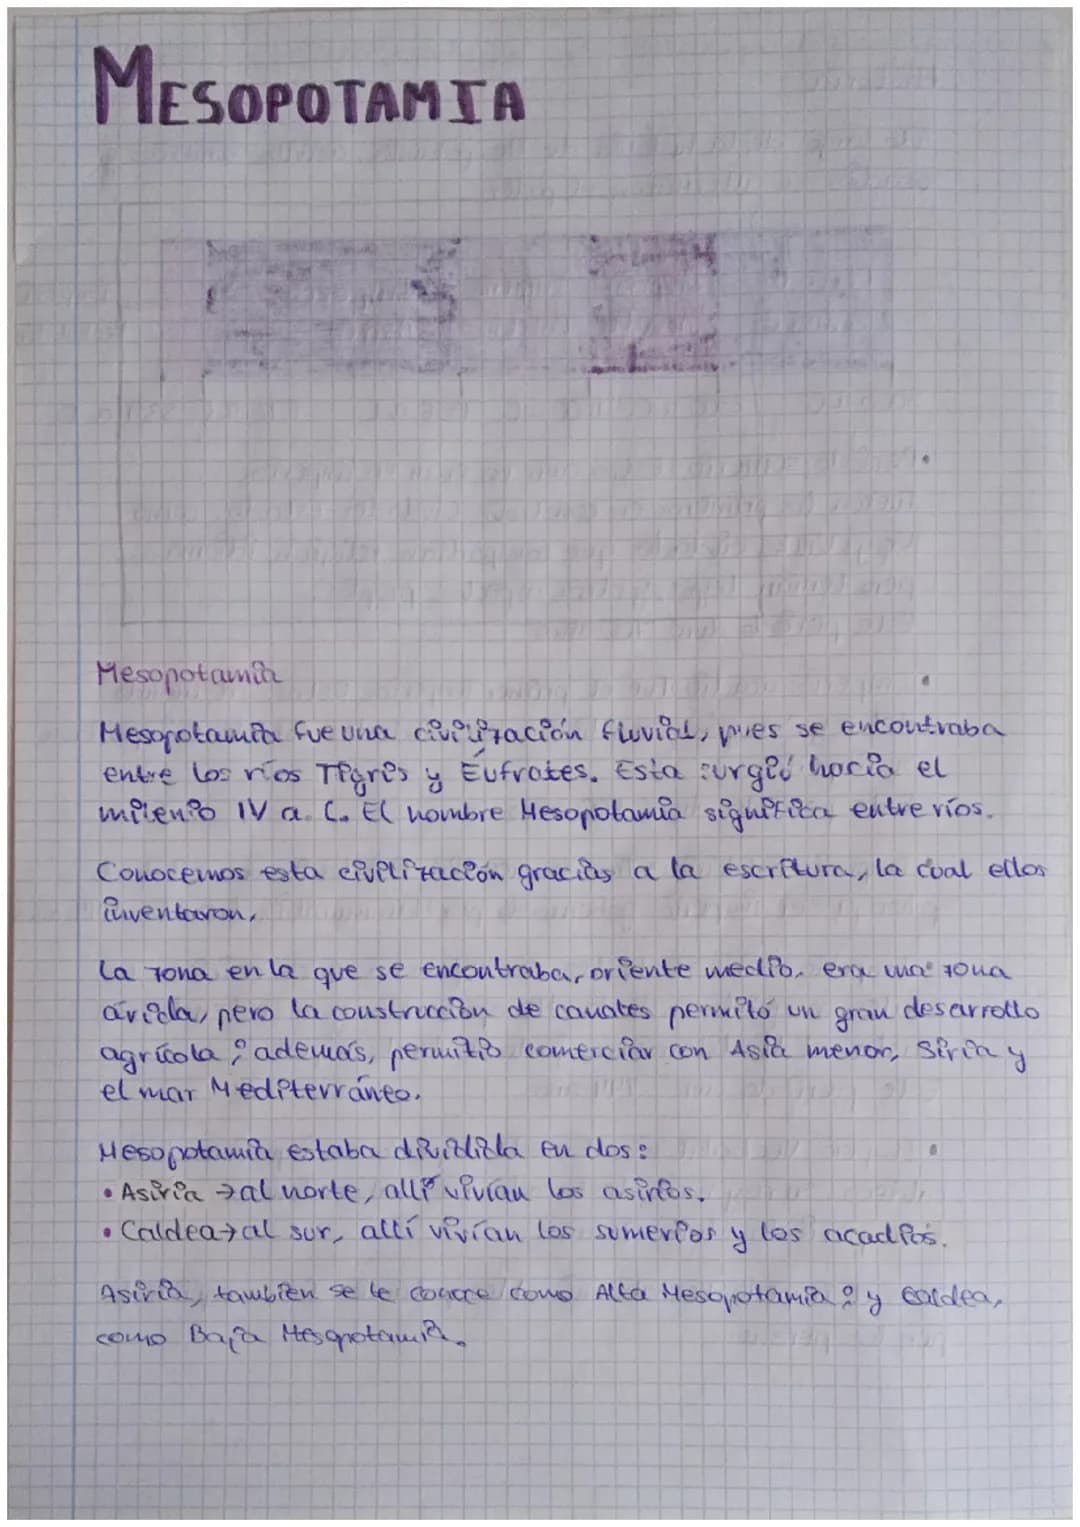 MESOPOTAMIA
Mesopotamia
Mesopotamia fue una civilización fluvial, pues se encontraba
entre los ríos Tigris y Eufrates. Esta surgió hacia el
milenio IV a. C. El nombre Mesopotamia significa entre ríos.
Conocemos esta civilización gracias a la escritura, la cual ellos
inventaron.
La zona en la que se encontraba, oriente medio, era una zona
árida, pero la construcción de canales permitó un gran desarrollo
agrícola; además, permitio comerciar con Asia menor, Siria y
el mar Mediterráneo.
Mesopotamia estaba dividida en dos:
• Asiria → al norte, allí vivían los asirios.
• Caldea → al sur, allí vivían los sumerios y los acadios.
Asiria, tambien se le conoce como Alta Mesopotamia; y Caldea,
como Baja Mesopotamia.